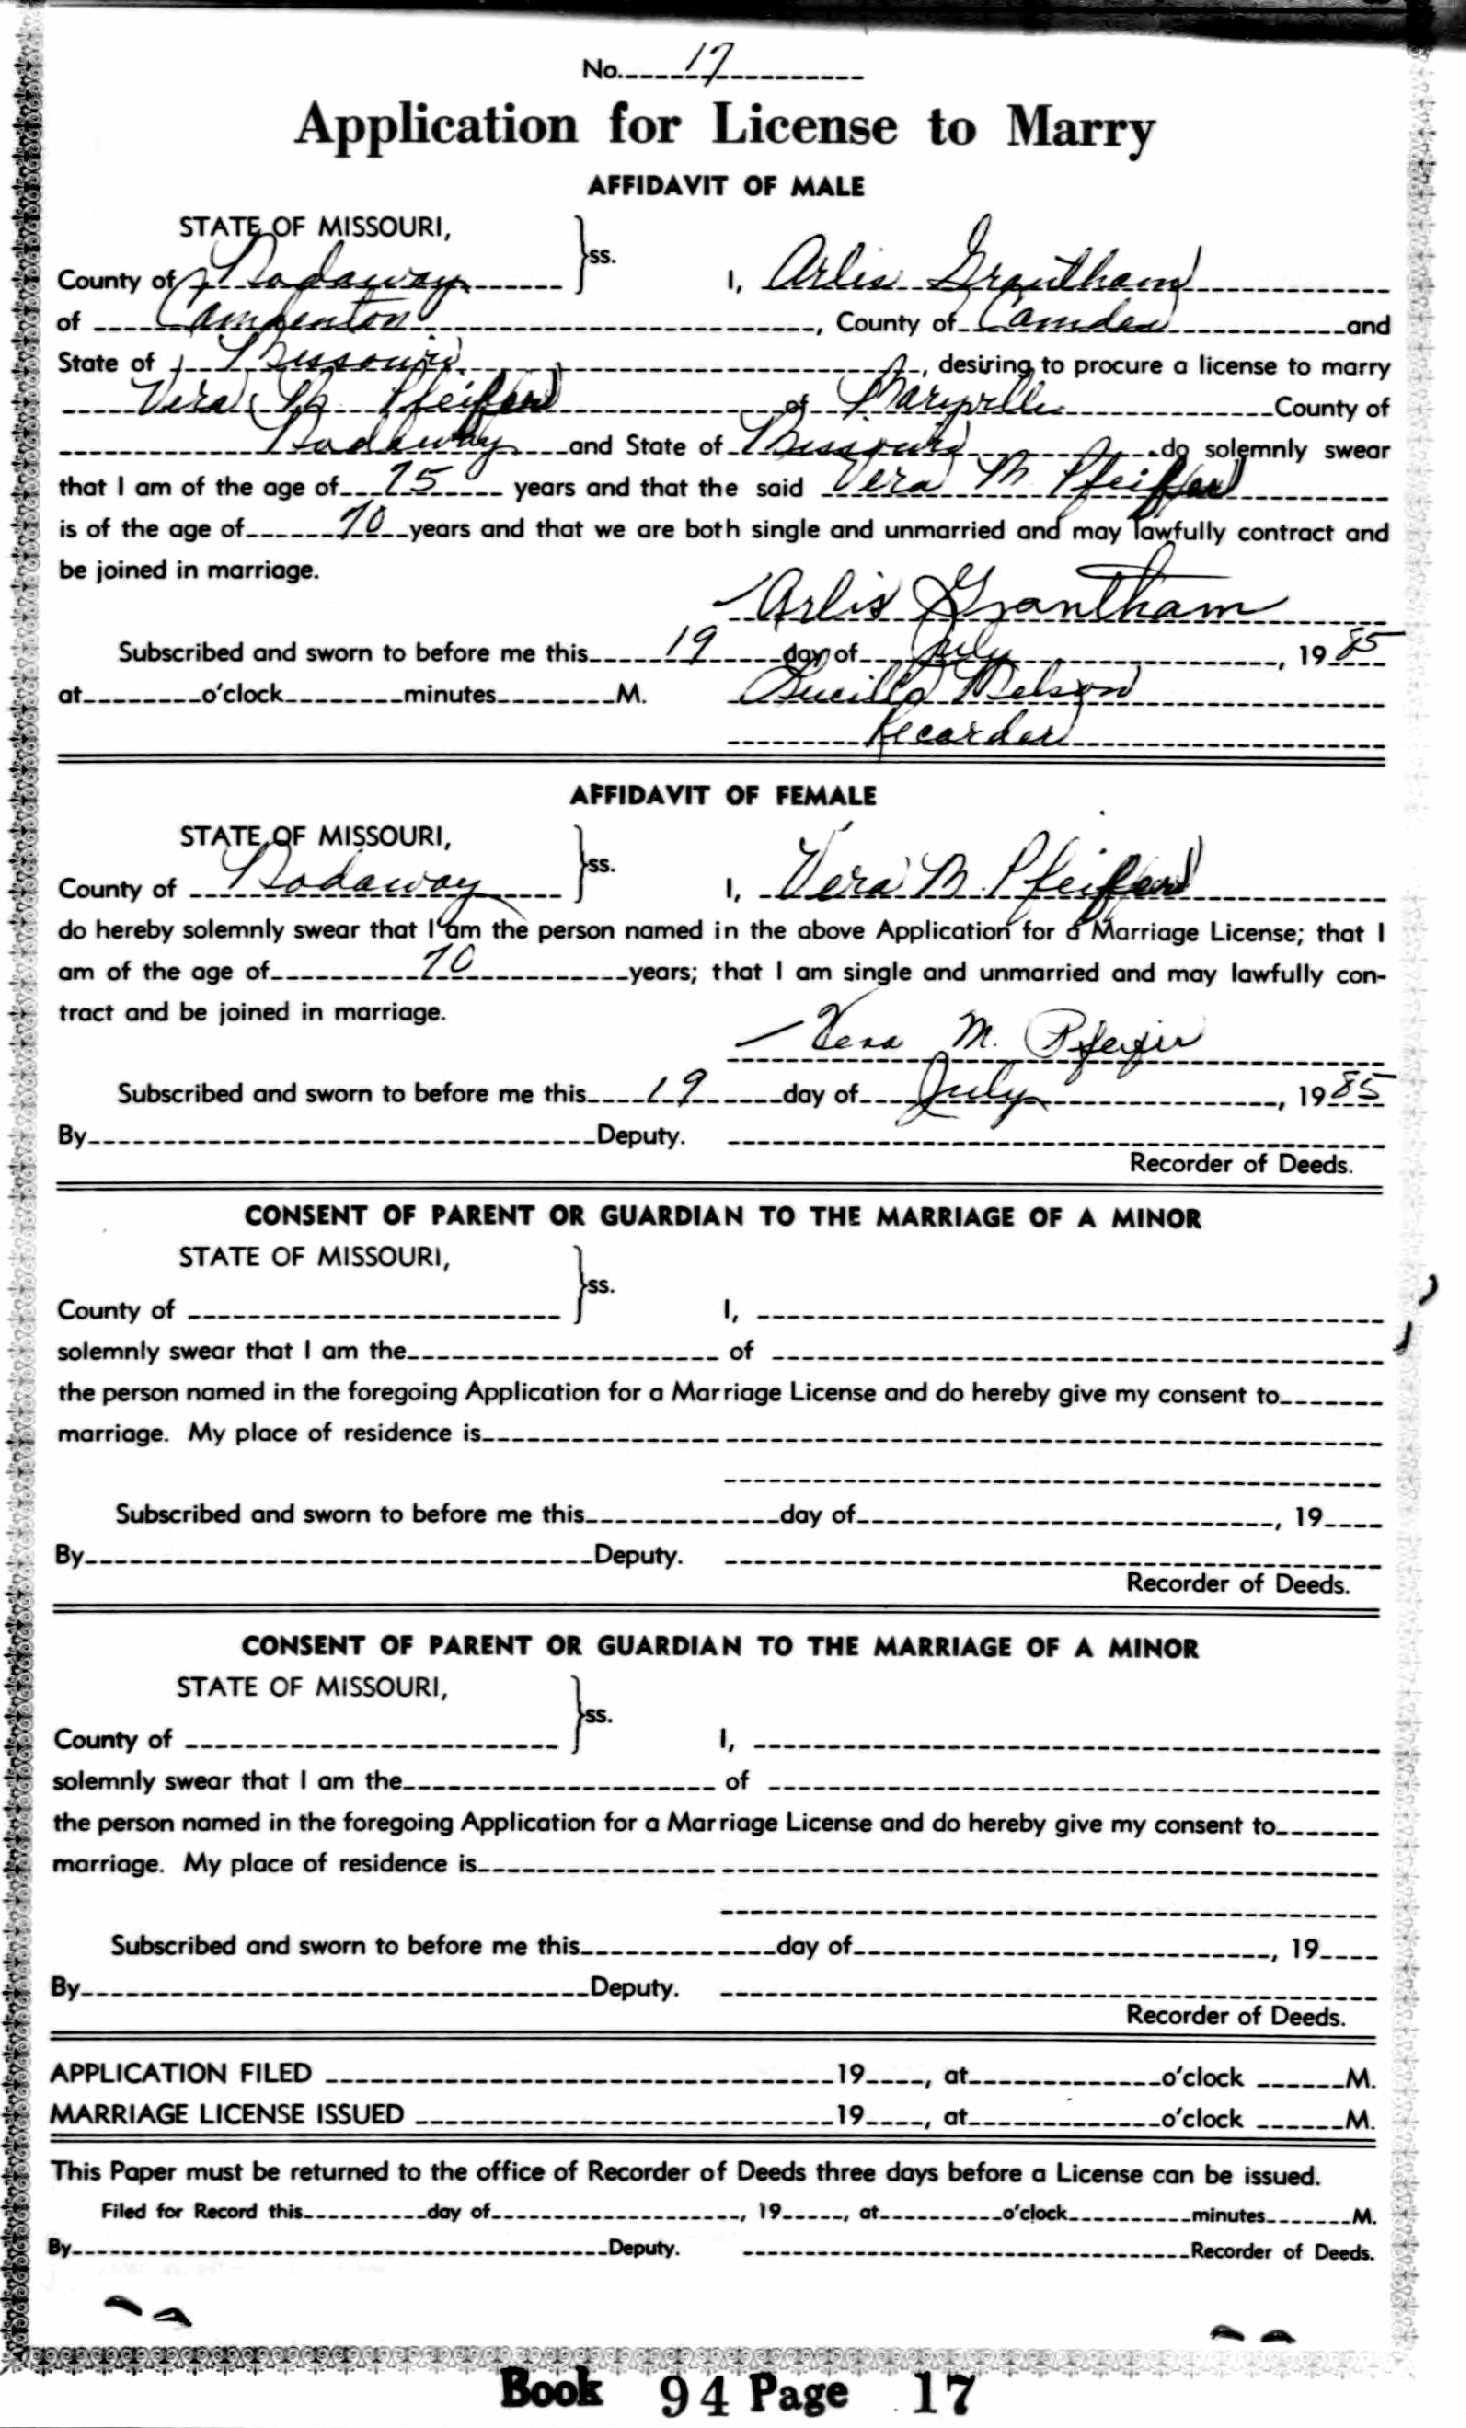 No. 17
Application for License to Marry
AFFIDAVIT OF MALE
STATE OF MISSOURI,
County of Nodaway ss. I, Arlis Grantham
of Camdenton, County of Camden and
State of Missouri, desiring to procure a license to marry
Vera M. Pfeiffer of Maryville County of
Nodaway and State of Missouri do solemnly swear
that I am of the age of 75 years and that the said Vera M. Pfeiffer
is of the age of 70 years and that we are both single and unmarried and may lawfully contract and
be joined in marriage.
Arlis Grantham
Subscribed and sworn to before me this 19 day of July, 1985
at o'clock minutes M. Lucille Nelson
Recorder
AFFIDAVIT OF FEMALE
STATE OF MISSOURI,
County of Nodaway ss. I, Vera M. Pfeiffer
do hereby solemnly swear that I am the person named in the above Application for a Marriage License; that I
am of the age of 70 years; that I am single and unmarried and may lawfully con-
tract and be joined in marriage.
Vera M. Pfeifer
Subscribed and sworn to before me this 19 day of July, 1985
By Deputy.
Recorder of Deeds.
CONSENT OF PARENT OR GUARDIAN TO THE MARRIAGE OF A MINOR
STATE OF MISSOURI,
County of ss. I,
solemnly swear that I am the of
the person named in the foregoing Application for a Marriage License and do hereby give my consent to
marriage. My place of residence is
Subscribed and sworn to before me this day of , 19
By Deputy.
Recorder of Deeds.
CONSENT OF PARENT OR GUARDIAN TO THE MARRIAGE OF A MINOR
STATE OF MISSOURI,
County of ss. I,
solemnly swear that I am the of
the person named in the foregoing Application for a Marriage License and do hereby give my consent to
marriage. My place of residence is
Subscribed and sworn to before me this day of , 19
By Deputy.
Recorder of Deeds.
APPLICATION FILED 19 , at o'clock M.
MARRIAGE LICENSE ISSUED 19 , at o'clock M.
This Paper must be returned to the office of Recorder of Deeds three days before a License can be issued.
Filed for Record this day of , 19 , at o'clock minutes M.
By Deputy. Recorder of Deeds.
Book 94 Page 17